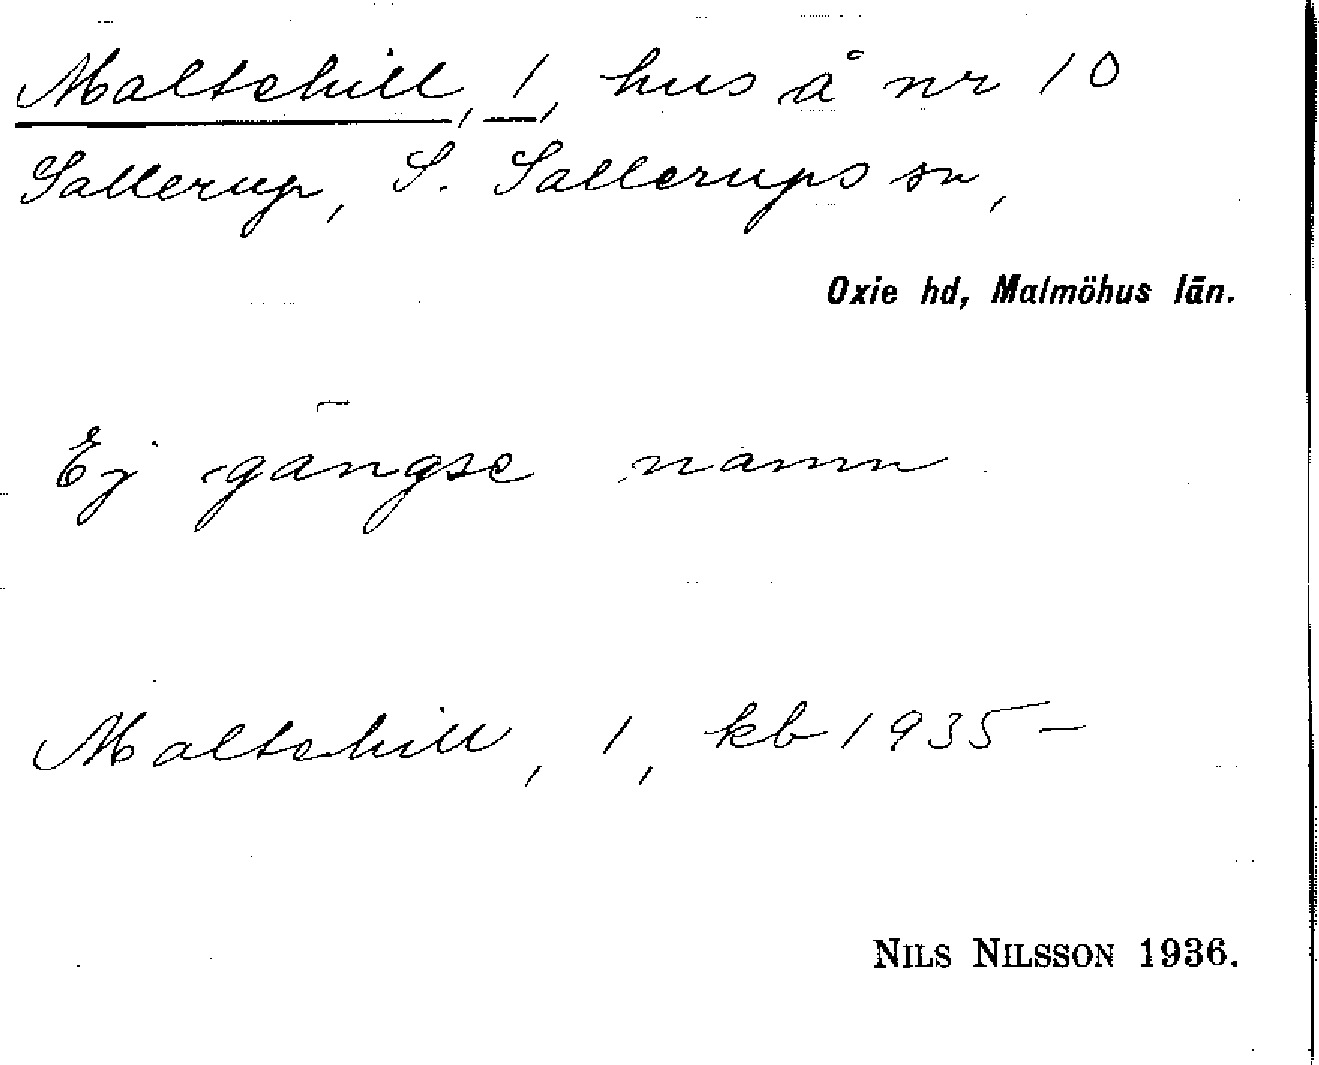 Maltehill, 1, hus å nr 10
Sallerup, S. Sallerups sn,
Oxie hd, Malmöhus län.
Ej gängse namn
Maltehill, 1, kb 1935–
NILS NILSSON 1936.